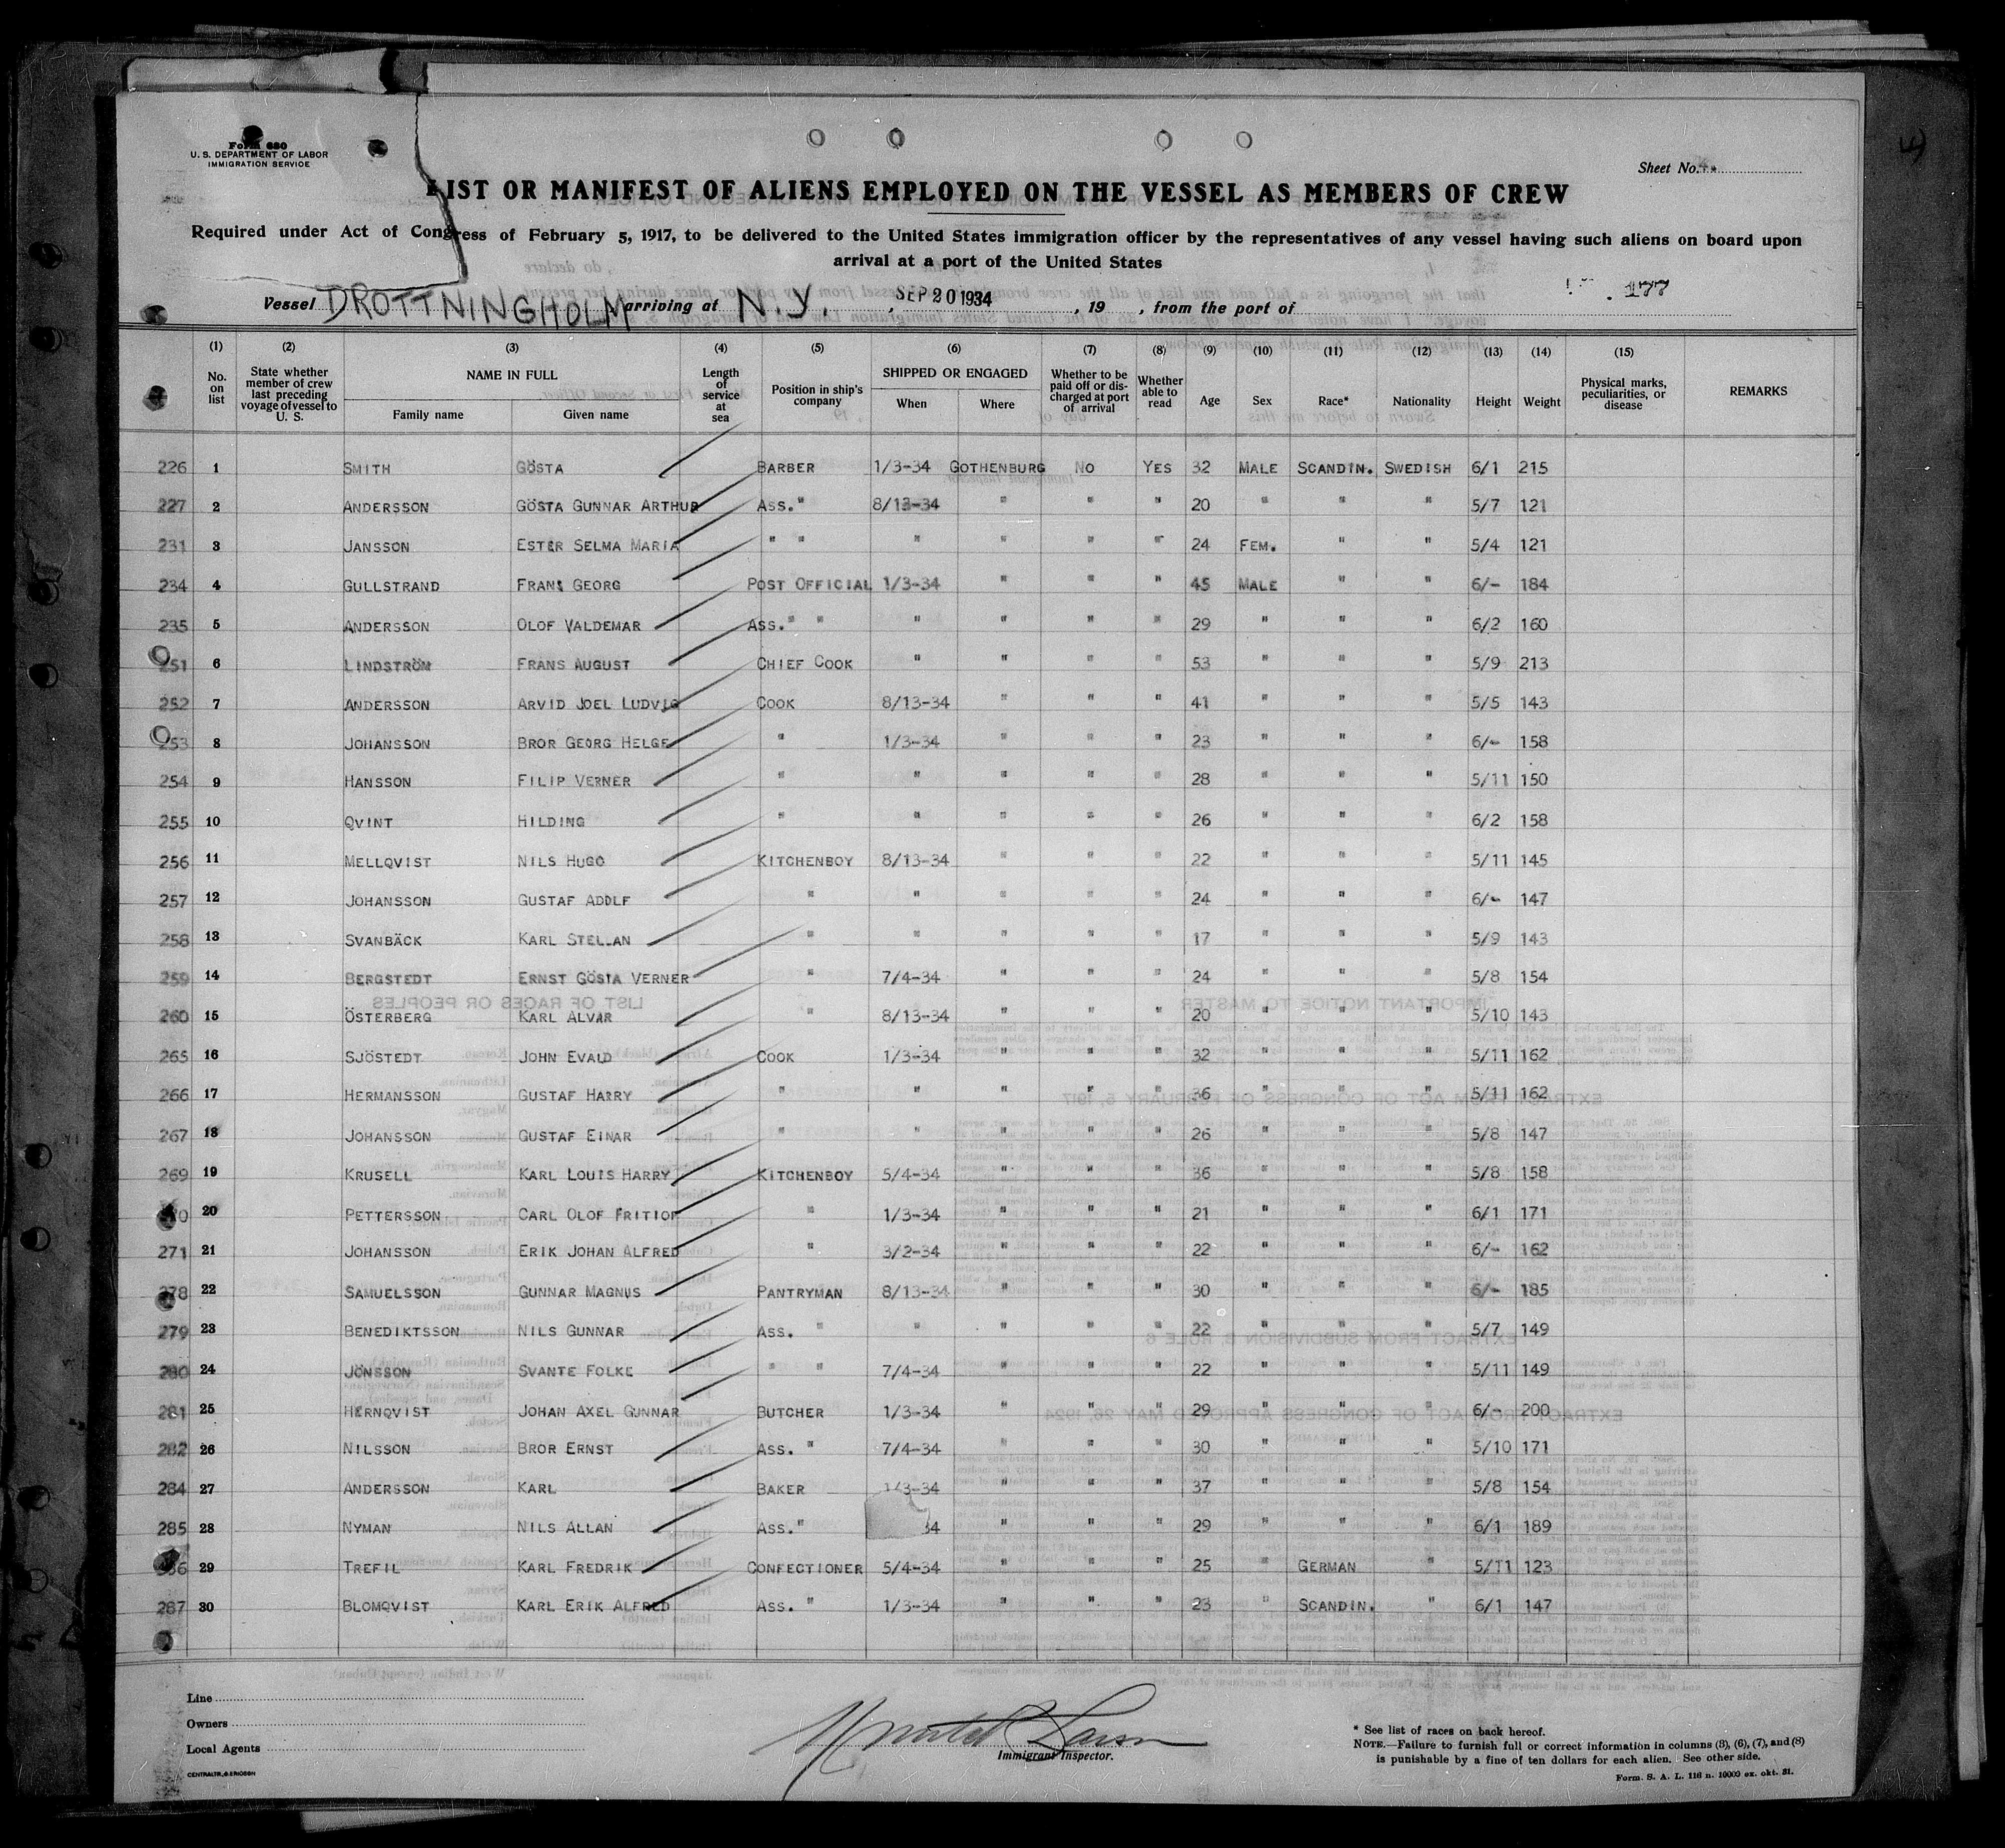 Form 680
U. S. DEPARTMENT OF LABOR
IMMIGRATION SERVICE
Sheet No. 4.
4
LIST OR MANIFEST OF ALIENS EMPLOYED ON THE VESSEL AS MEMBERS OF CREW
Required under Act of Congress of February 5, 1917, to be delivered to the United States immigration officer by the representatives of any vessel having such aliens on board upon
arrival at a port of the United States
177
Vessel DROTTNINGHOLM arriving at N.Y. , SEP 20 1934 , 19 , from the port of
(1) (2) (3) (4) (5) (6) (7) (8) (9) (10) (11) (12) (13) (14) (15)
No. on list State whether member of crew last preceding voyage of vessel to U. S. NAME IN FULL Family name Given name Length of service at sea Position in ship's company SHIPPED OR ENGAGED When Where Whether to be paid off or discharged at port of arrival Whether able to read Age Sex Race* Nationality Height Weight Physical marks, peculiarities, or disease REMARKS
226 1 SMITH GÖSTA BARBER 1/3-34 GOTHENBURG NO YES 32 MALE SCANDIN. SWEDISH 6/1 215
227 2 ANDERSSON GÖSTA GUNNAR ARTHUR ASS. " 8/13-34 " " " 20 " " " 5/7 121
231 3 JANSSON ESTER SELMA MARIA " " " " " " 24 FEM. " " 5/4 121
234 4 GULLSTRAND FRANS GEORG POST OFFICIAL 1/3-34 " " " 45 MALE " " 6/- 184
235 5 ANDERSSON OLOF VALDEMAR ASS. " " " " " " 29 " " " 6/2 160
251 6 LINDSTRÖM FRANS AUGUST CHIEF COOK " " " " 53 " " " 5/9 213
252 7 ANDERSSON ARVID JOEL LUDVIG COOK 8/13-34 " " " 41 " " " 5/5 143
253 8 JOHANSSON BROR GEORG HELGE " 1/3-34 " " " 23 " " " 6/- 158
254 9 HANSSON FILIP VERNER " " " " " 28 " " " 5/11 150
255 10 QVINT HILDING " " " " " 26 " " " 6/2 158
256 11 MELLQVIST NILS HUGO KITCHENBOY 8/13-34 " " " 22 " " " 5/11 145
257 12 JOHANSSON GUSTAF ADOLF " " " " " 24 " " " 6/- 147
258 13 SVANBÄCK KARL STELLAN " " " " " 17 " " " 5/9 143
259 14 BERGSTEDT ERNST GÖSTA VERNER " 7/4-34 " " " 24 " " " 5/8 154
260 15 ÖSTERBERG KARL ALVAR " 8/13-34 " " " 20 " " " 5/10 143
265 16 SJÖSTEDT JOHN EVALD COOK 1/3-34 " " " 32 " " " 5/11 162
266 17 HERMANSSON GUSTAF HARRY " " " " " 36 " " " 5/11 162
267 18 JOHANSSON GUSTAF EINAR " " " " " 26 " " " 5/8 147
269 19 KRUSELL KARL LOUIS HARRY KITCHENBOY 5/4-34 " " " 36 " " " 5/8 158
20 PETTERSSON CARL OLOF FRITIOF " 1/3-34 " " " 21 " " " 6/1 171
271 21 JOHANSSON ERIK JOHAN ALFRED " 3/2-34 " " " 22 " " " 6/- 162
278 22 SAMUELSSON GUNNAR MAGNUS PANTRYMAN 8/13-34 " " " 30 " " " 6/- 185
279 23 BENEDIKTSSON NILS GUNNAR ASS. " " " " " 22 " " " 5/7 149
280 24 JÖNSSON SVANTE FOLKE " " 7/4-34 " " " 22 " " " 5/11 149
281 25 HERNQVIST JOHAN AXEL GUNNAR BUTCHER 1/3-34 " " " 29 " " " 6/- 200
282 26 NILSSON BROR ERNST ASS. " 7/4-34 " " " 30 " " " 5/10 171
284 27 ANDERSSON KARL BAKER 1/3-34 " " " 37 " " " 5/8 154
285 28 NYMAN NILS ALLAN ASS. " 34 " " " 29 " " " 6/1 189
29 TREFIL KARL FREDRIK CONFECTIONER 5/4-34 " " " 25 " GERMAN " 5/11 123
287 30 BLOMQVIST KARL ERIK ALFRED ASS. " 1/3-34 " " " 23 " SCANDIN. " 6/1 147
Line
Owners
Local Agents
CENTRALTR., G. ERICSON
Immigrant Inspector.
* See list of races on back hereof.
NOTE.—Failure to furnish full or correct information in columns (3), (6), (7), and (8)
is punishable by a fine of ten dollars for each alien. See other side.
Form. S. A. L. 116 n. 10000 ex. okt. 31.